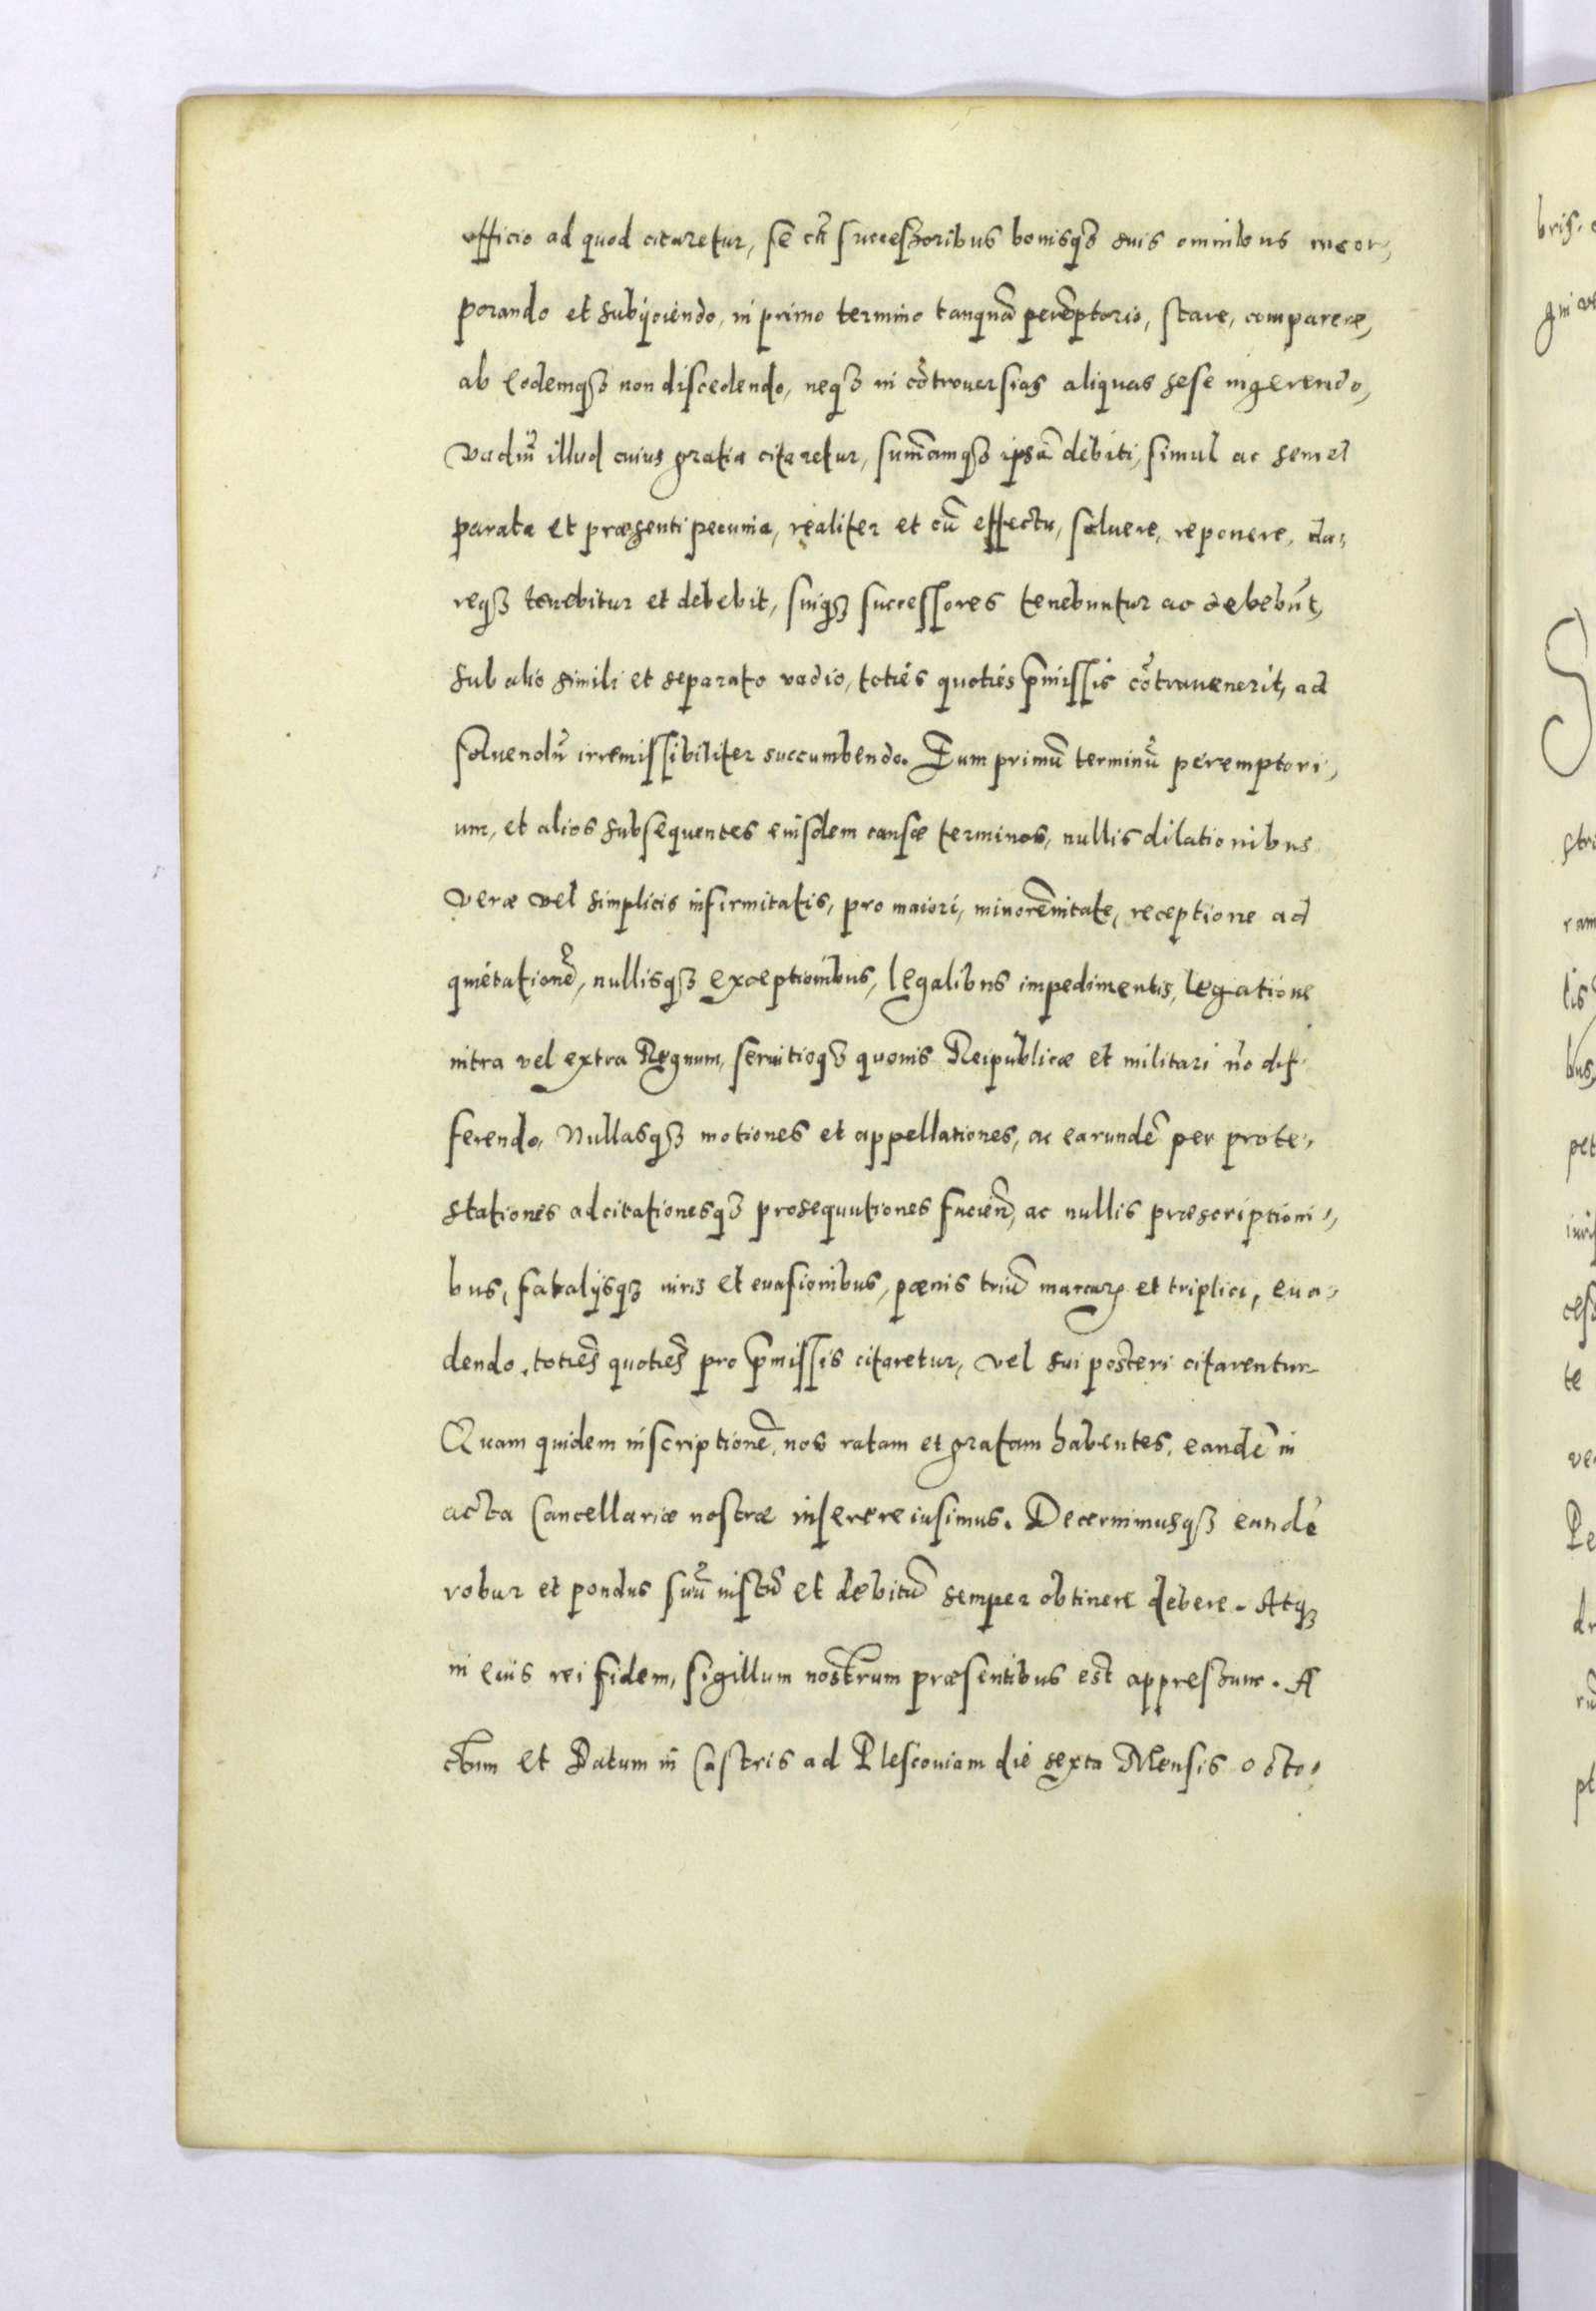 officio ad quod citaretur, se cũ successoribus bonisqȝ suis omnibus incor,
porando et subijciendo, in primo termino tanquã perẽptorio, stare, comparere,
ab eodemqȝ non discedendo, neqȝ in cõtrouersias aliquas sese ingerendo,
vadiũ illud cuius gratia citaretur, sum̃amqȝ ipsã debiti, simul ac semel
parata et præsenti pecunia, realiter et cũ effectu, soluere, reponere, da,
reqȝ tenebitur et debebit, suiqȝ successores tenebuntur ac debebũt,
sub alio simili et separato vadio, toties quoties p̃missis cõtrauenerit, ad
soluendũ irremissibiliter succumbendo. Eum primũ terminũ peremptori,
um, et alios subsequentes eiusdem causæ terminos, nullis dilationibus
veræ vel simplicis infirmitatis, pro maiori, minorẽnitate, receptione ad
quietationẽ, nullisqȝ exceptionibus, legalibus impedimentis, legatione
intra vel extra Regnum, seruitioqȝ quouis Reipublicæ et militari nõ dif
ferendo, Nullasqȝ motiones et appellationes, ac earundẽ per prote,
stationes adcitationesqȝ prosequutiones facien̄, ac nullis præscriptioni,
bus, fatalijsqȝ iuris et euasionibus, pœnis triũ marcarꝝ et triplici, eua,
dendo, toties quoties pro p̃missis citaretur, vel sui posteri citarentur.
Quam quidem inscriptionẽ, nos ratam et gratam habentes, eandẽ in
acta Cancellariæ nostræ inserere iusimus. Decernimusqȝ eandẽ
robur et pondus suũ iustũ et debitũ semper obtinere debere. Atqȝ
in eius rei fidem, sigillum nostrum præsentibus est appressum. A
ctum et Datum in Castris ad Plescouiam die sexta Mensis Octo,